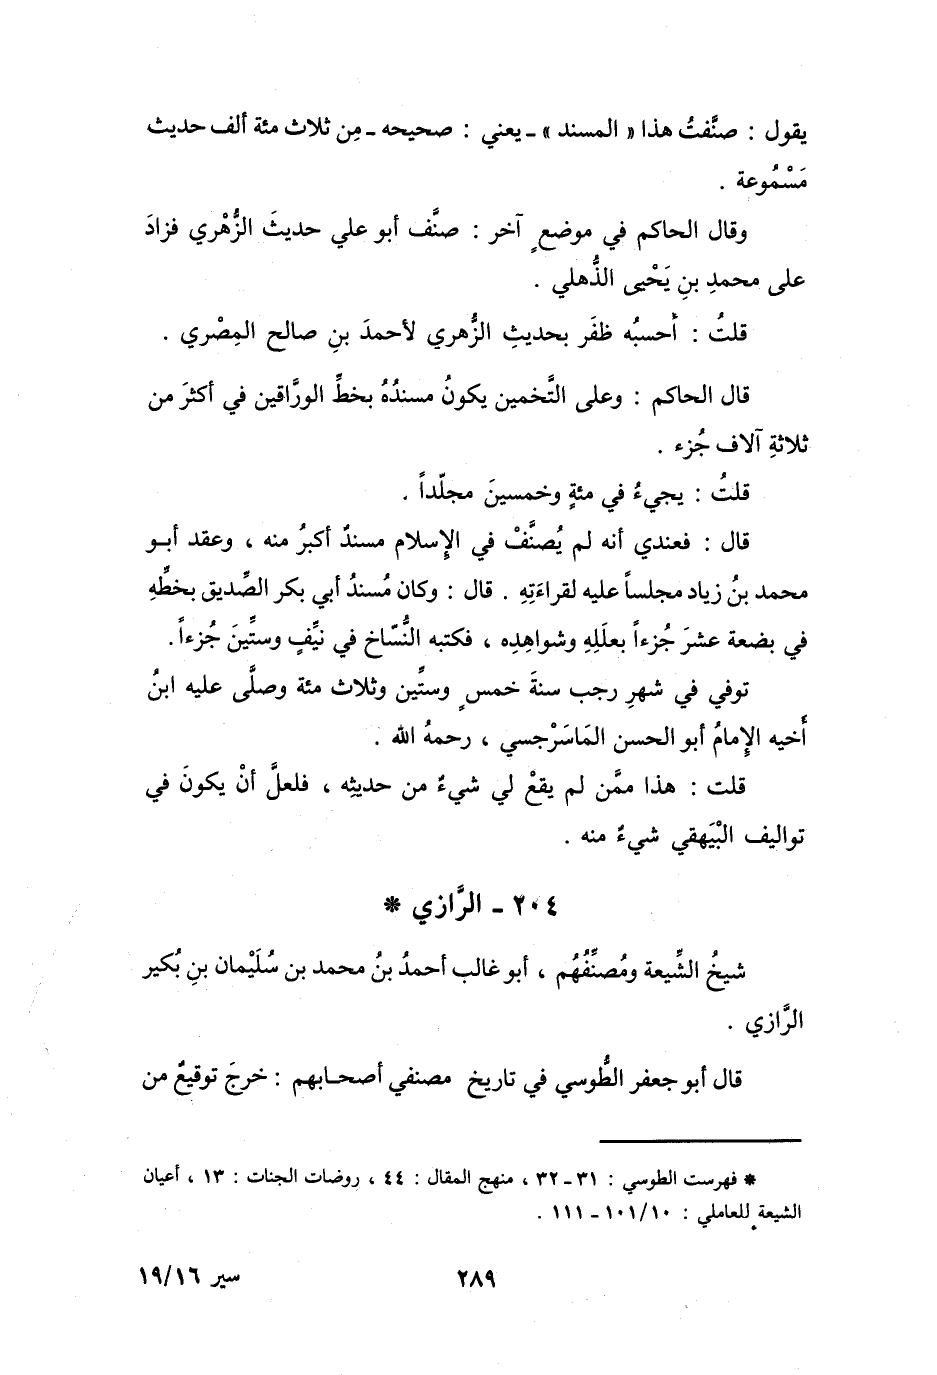 يقول : صنَّفتُ هذا « المسند » ـ يعني : صحيحه ـ مِن ثلاث مئة ألف حديث
مَسْمُوعة .
وقال الحاكم في موضعٍ آخر : صنَّف أبو علي حديثَ الزُّهْري فزادَ
على محمدِ بنِ يَحْيى الذُّهلي .
قلتُ : أحسبُه ظفَر بحديثِ الزُّهري لأحمدَ بنِ صالح المِصْري .
قال الحاكم : وعلى التَّخمين يكونُ مسندُهُ بخطِّ الورَّاقين في أكثرَ من
ثلاثةِ آلاف جُزء .
قلتُ : يجيءُ في مئةٍ وخمسينَ مجلّداً .
قال : فعندي أنه لم يُصنَّفْ في الإسلام مسندٌ أكبرُ منه ، وعقد أبو
محمد بنُ زياد مجلساً عليه لقراءَتِهِ . قال : وكان مُسندُ أبي بكر الصِّديق بخطِّهِ
في بضعة عشرَ جُزءاً بعلَلِهِ وشواهدِه ، فكتبه النُّسّاخ في نيِّفٍ وستِّينَ جُزءاً .
توفي في شهرِ رجب سنةَ خمسٍ وستِّين وثلاث مئة وصلَّى عليه ابنُ
أخيه الإمامُ أبو الحسن المَاسَرْجسي ، رحمهُ الله .
قلت : هذا ممَّن لم يقعْ لي شيءٌ من حديثِه ، فلعلَّ أنْ يكونَ في
تواليف البْيَهقي شيءٌ منه .
٢٠٤ ـ الرَّازي *
شيخُ الشِّيعة ومُصنِّفُهُم ، أبو غالب أحمدُ بنُ محمد بن سُلَيْمان بنِ بُكير
الرَّازي .
قال أبو جعفر الطُّوسي في تاريخ مصنفي أصحابهم : خرجَ توقيعٌ من
* فهرست الطوسي : ٣١ ـ ٣٢ ، منهج المقال : ٤٤ ، روضات الجنات : ١٣ ، أعيان
الشيعة للعاملي : ١٠١/١٠ ـ ١١١ .
٢٨٩
سير ١٩/١٦